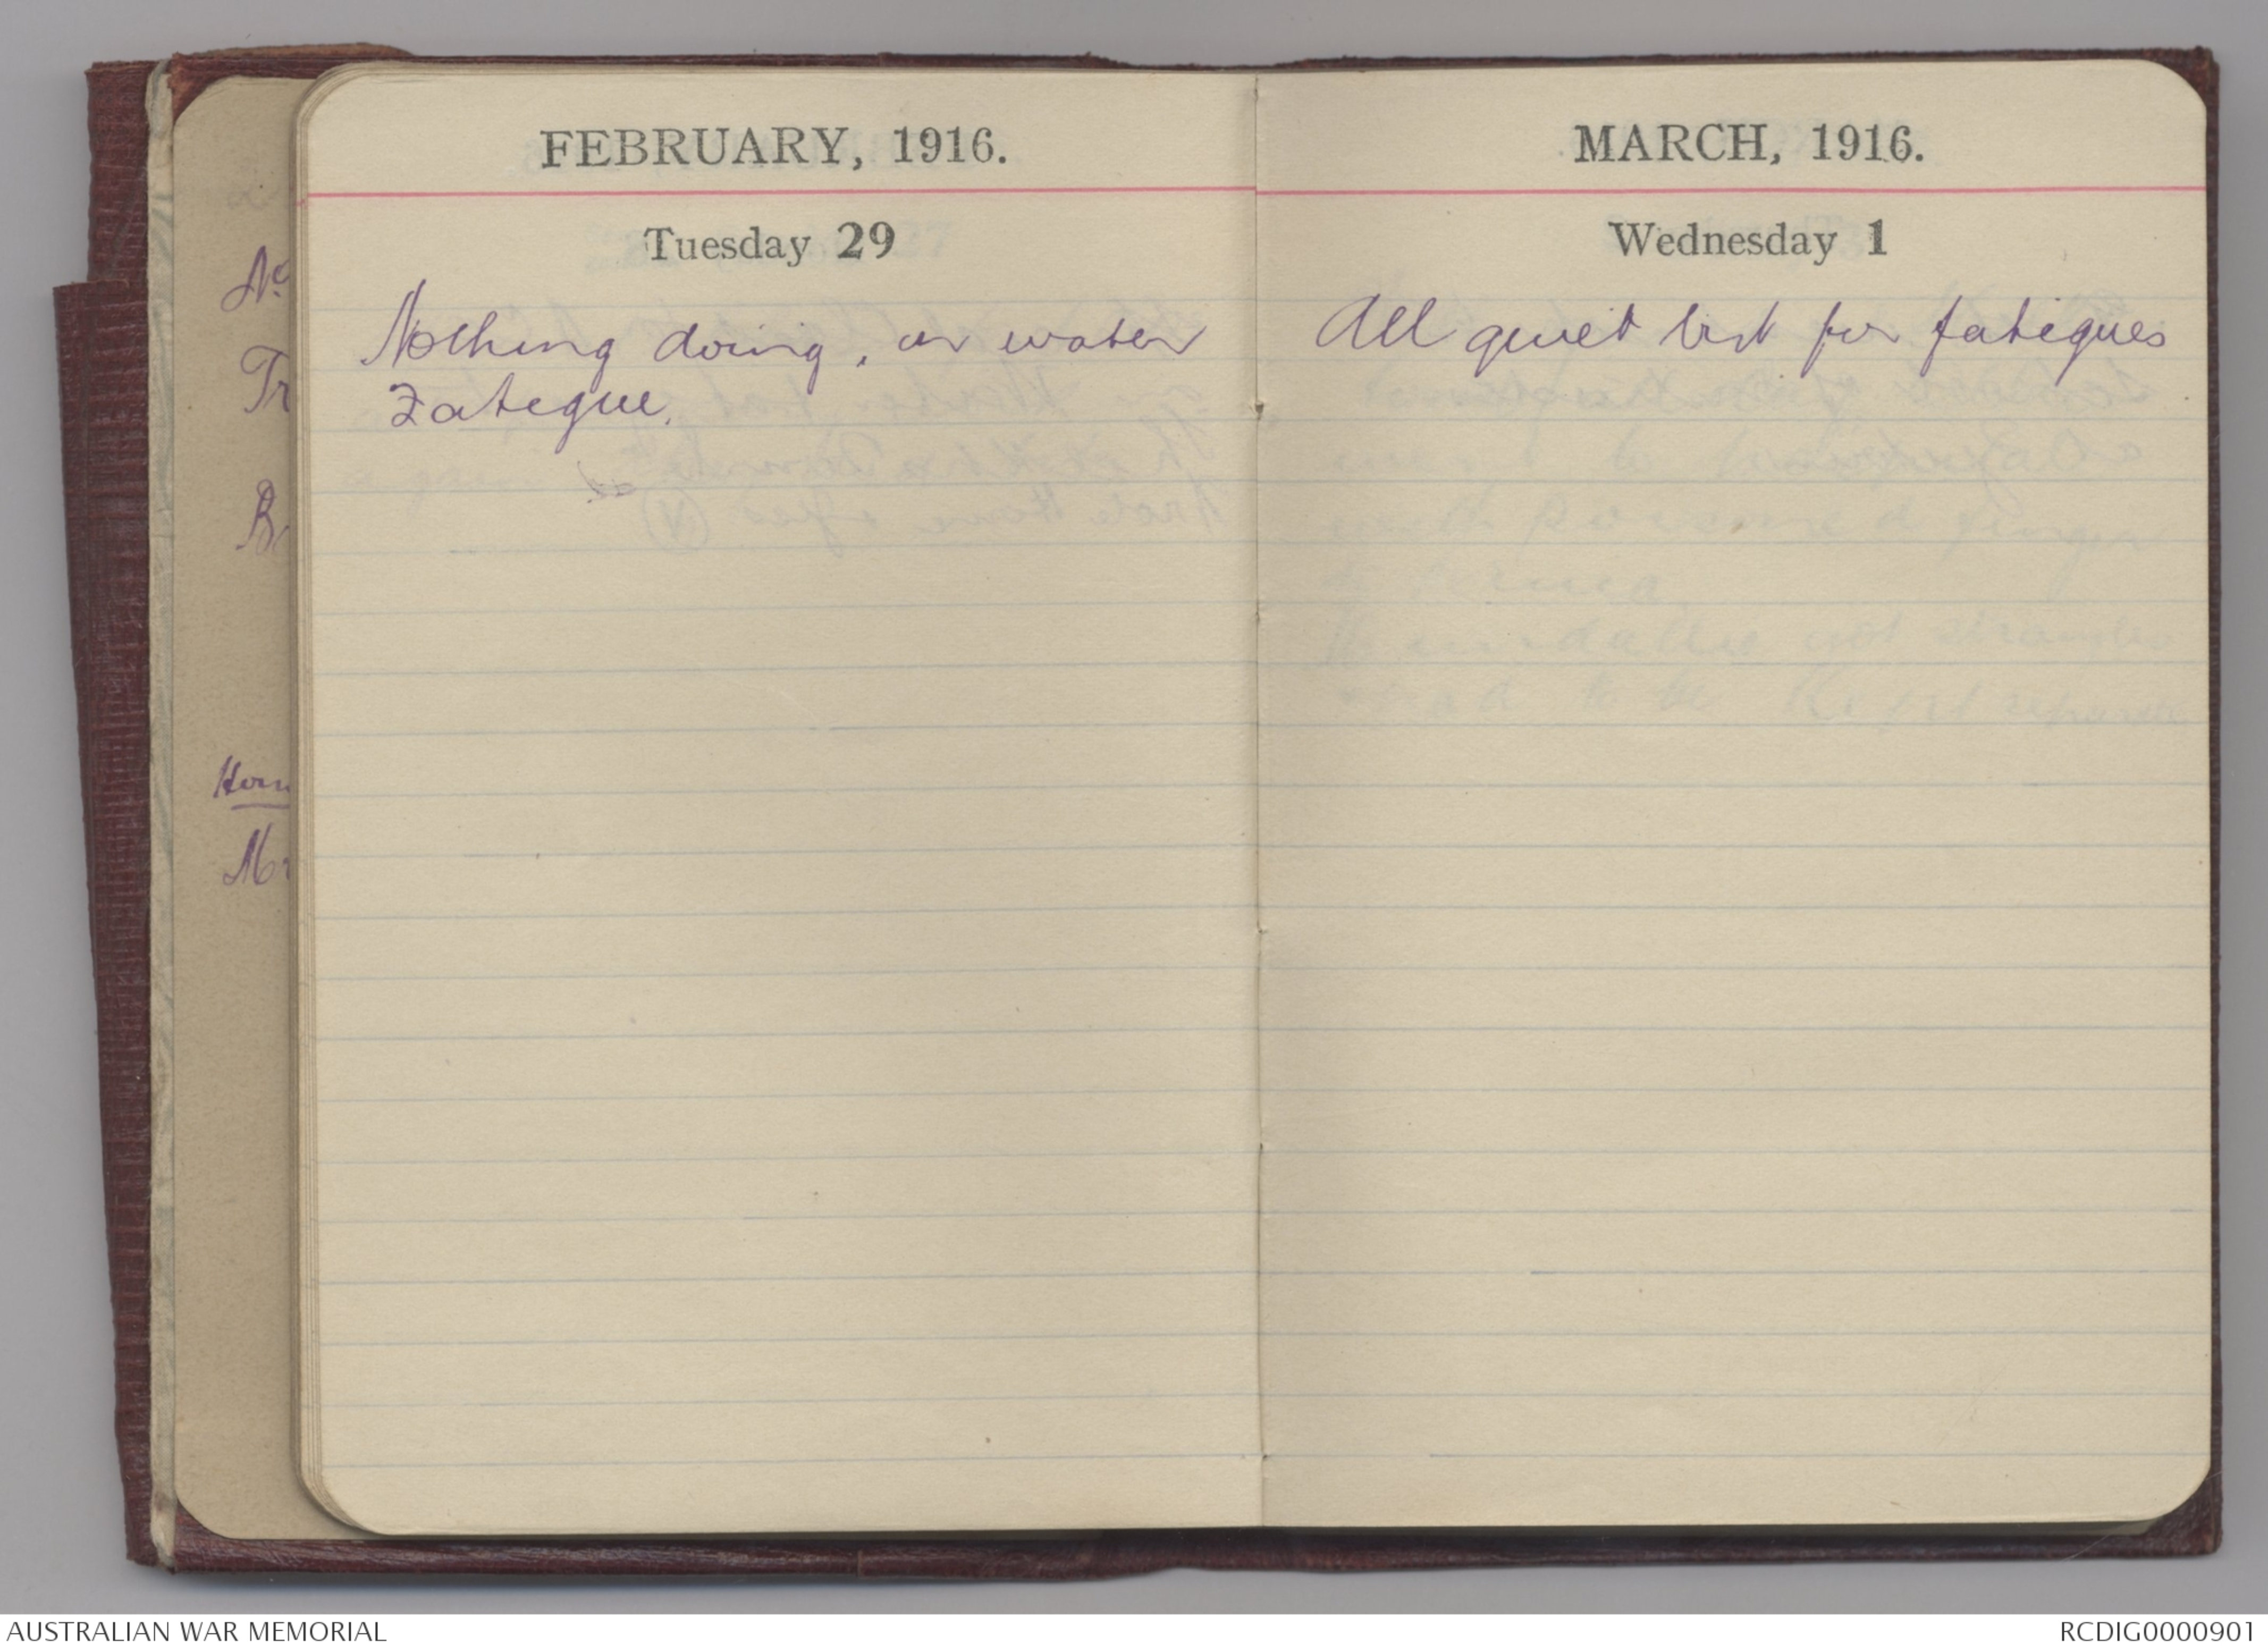 FEBRUARY, 1916.
Tuesday 29
Nothing doing, on water
Fatigue.
MARCH, 1916.
Wednesday 1
All quiet but for fatigues
No
Tr
Hom
Mr
AUSTRALIAN WAR MEMORIAL
RCDIG0000901